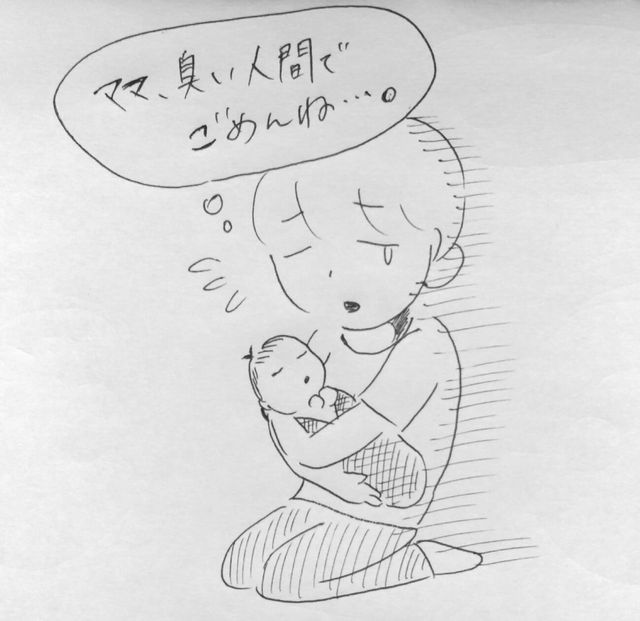 ママ、臭い人間で
ごめんね…。